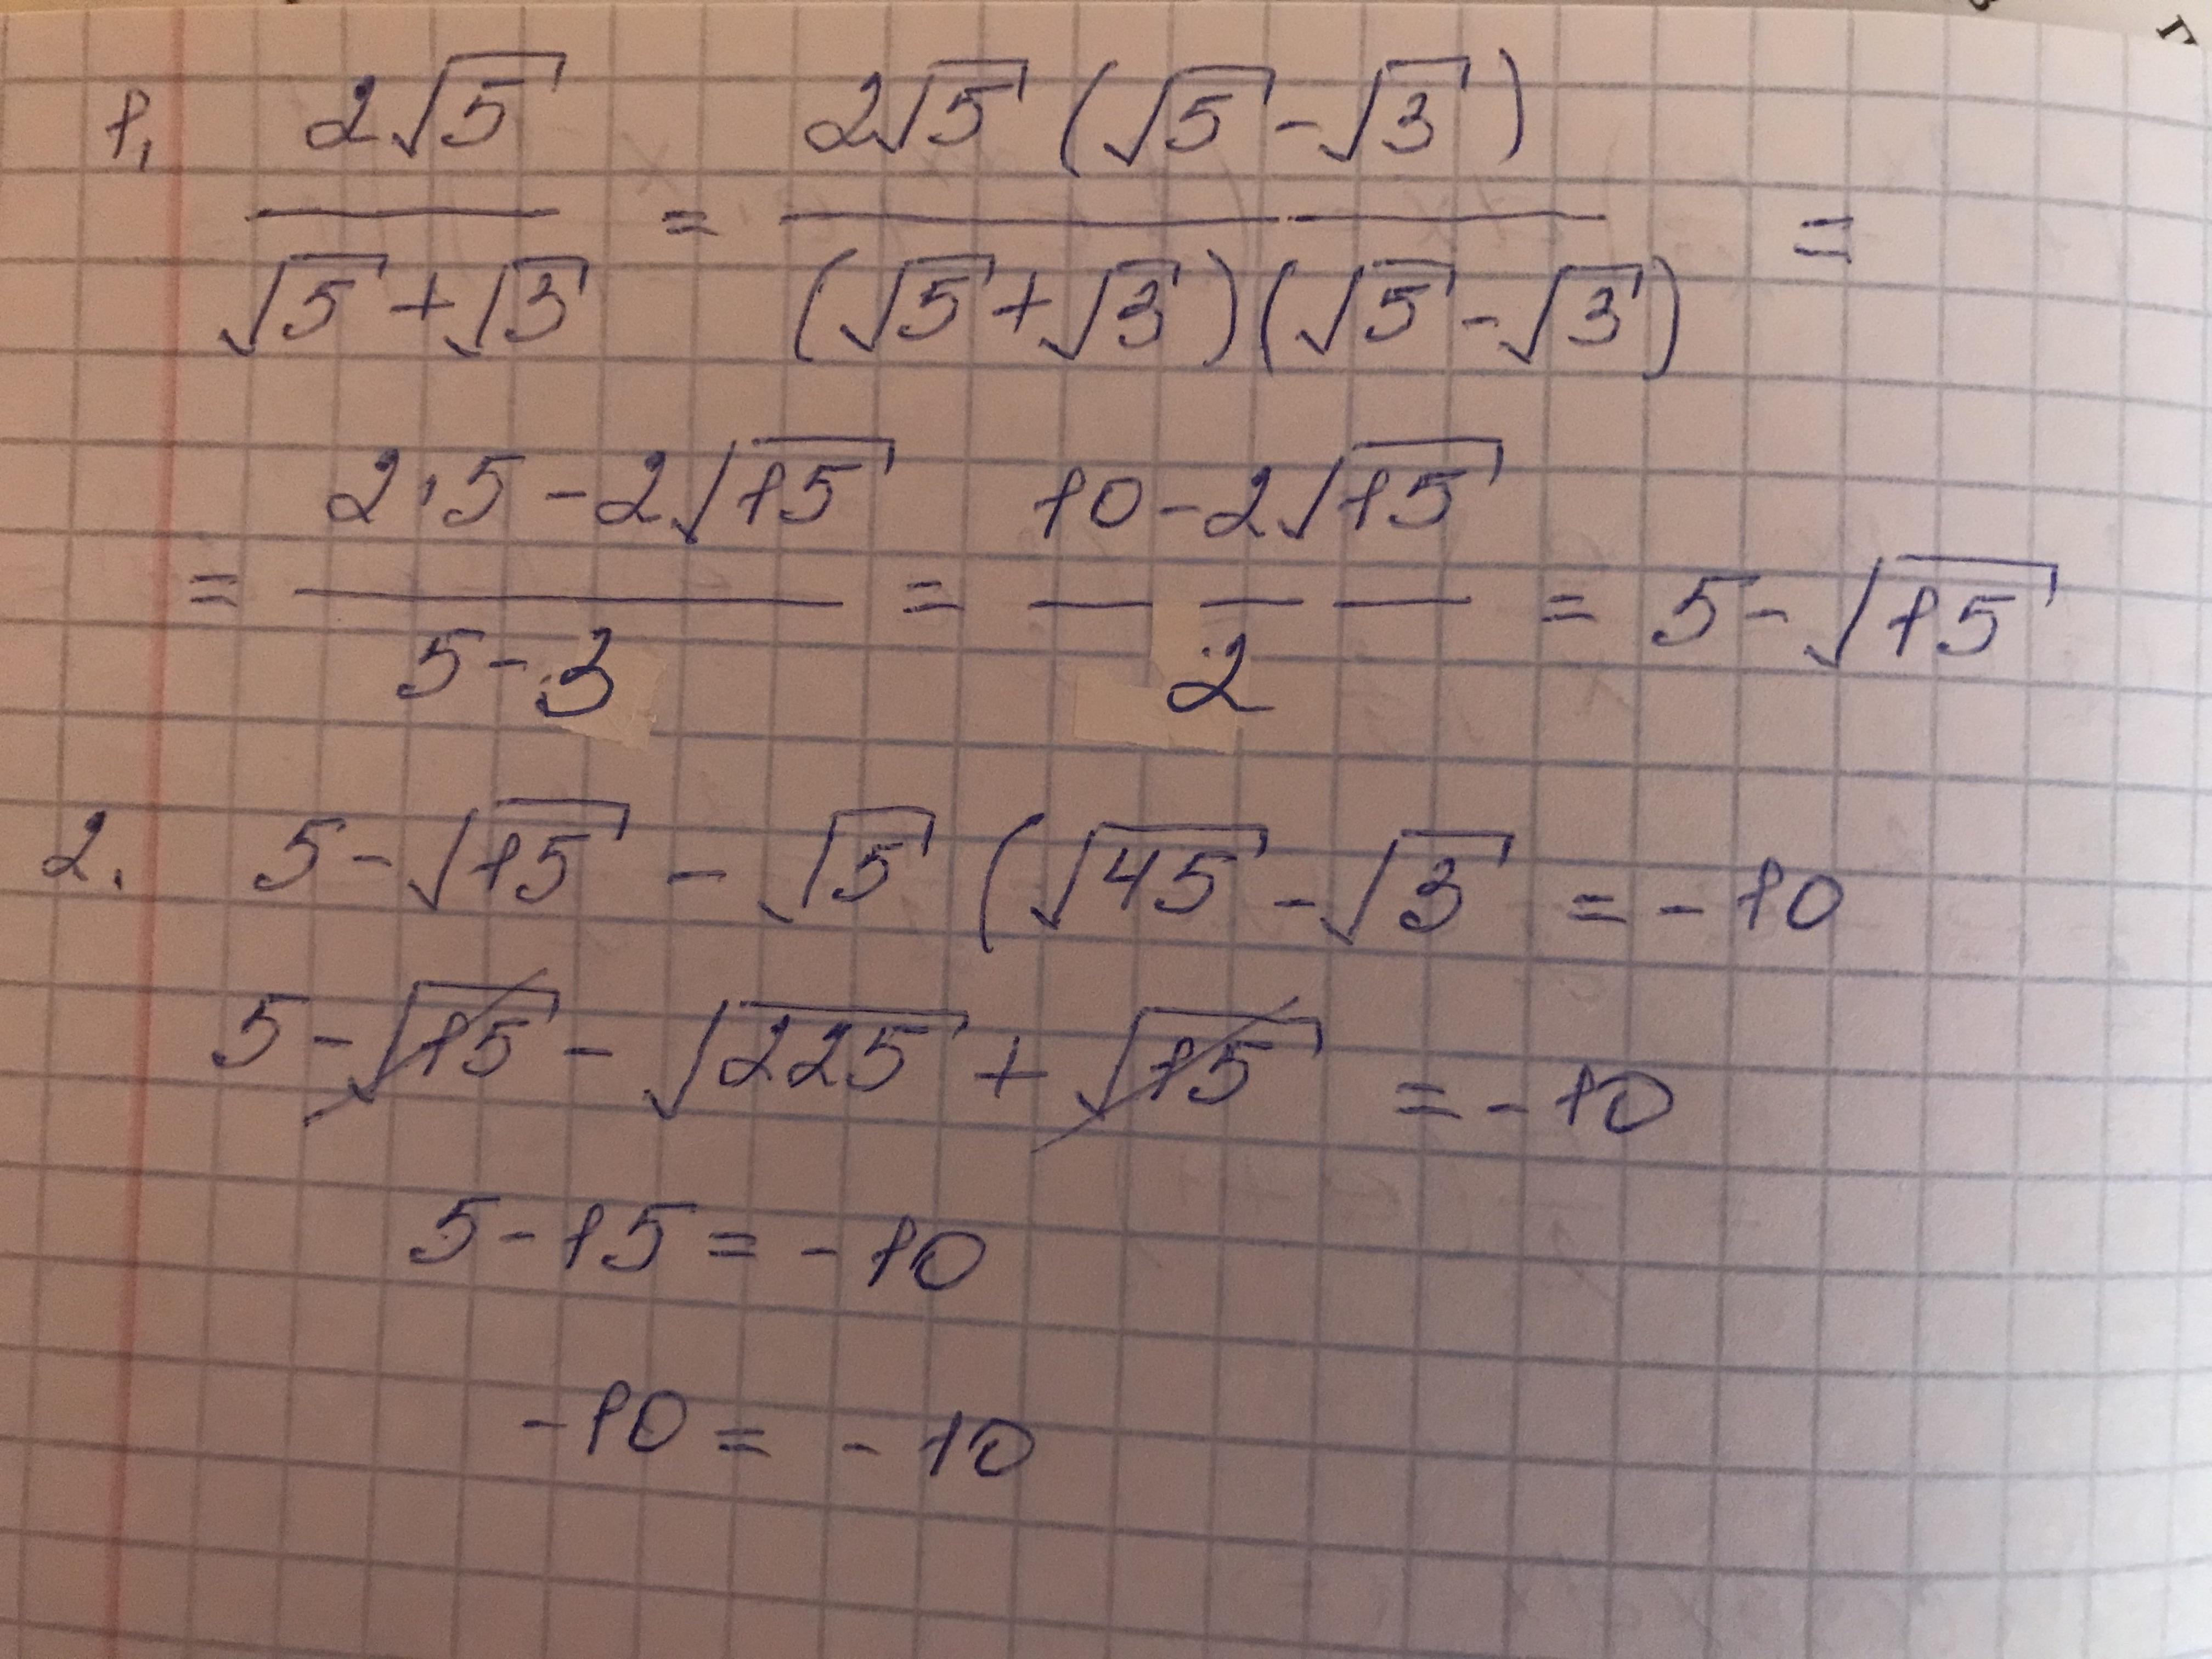 1. 2√5 / (√5+√3) = 2√5 (√5-√3) / (√5+√3)(√5-√3) =
= 2·5-2√15 / 5-3 = 10-2√15 / 2 = 5-√15
2. 5-√15 - √5 (√45-√3 = -10
5-√15 - √225 + √15 = -10
5-15 = -10
-10 = -10